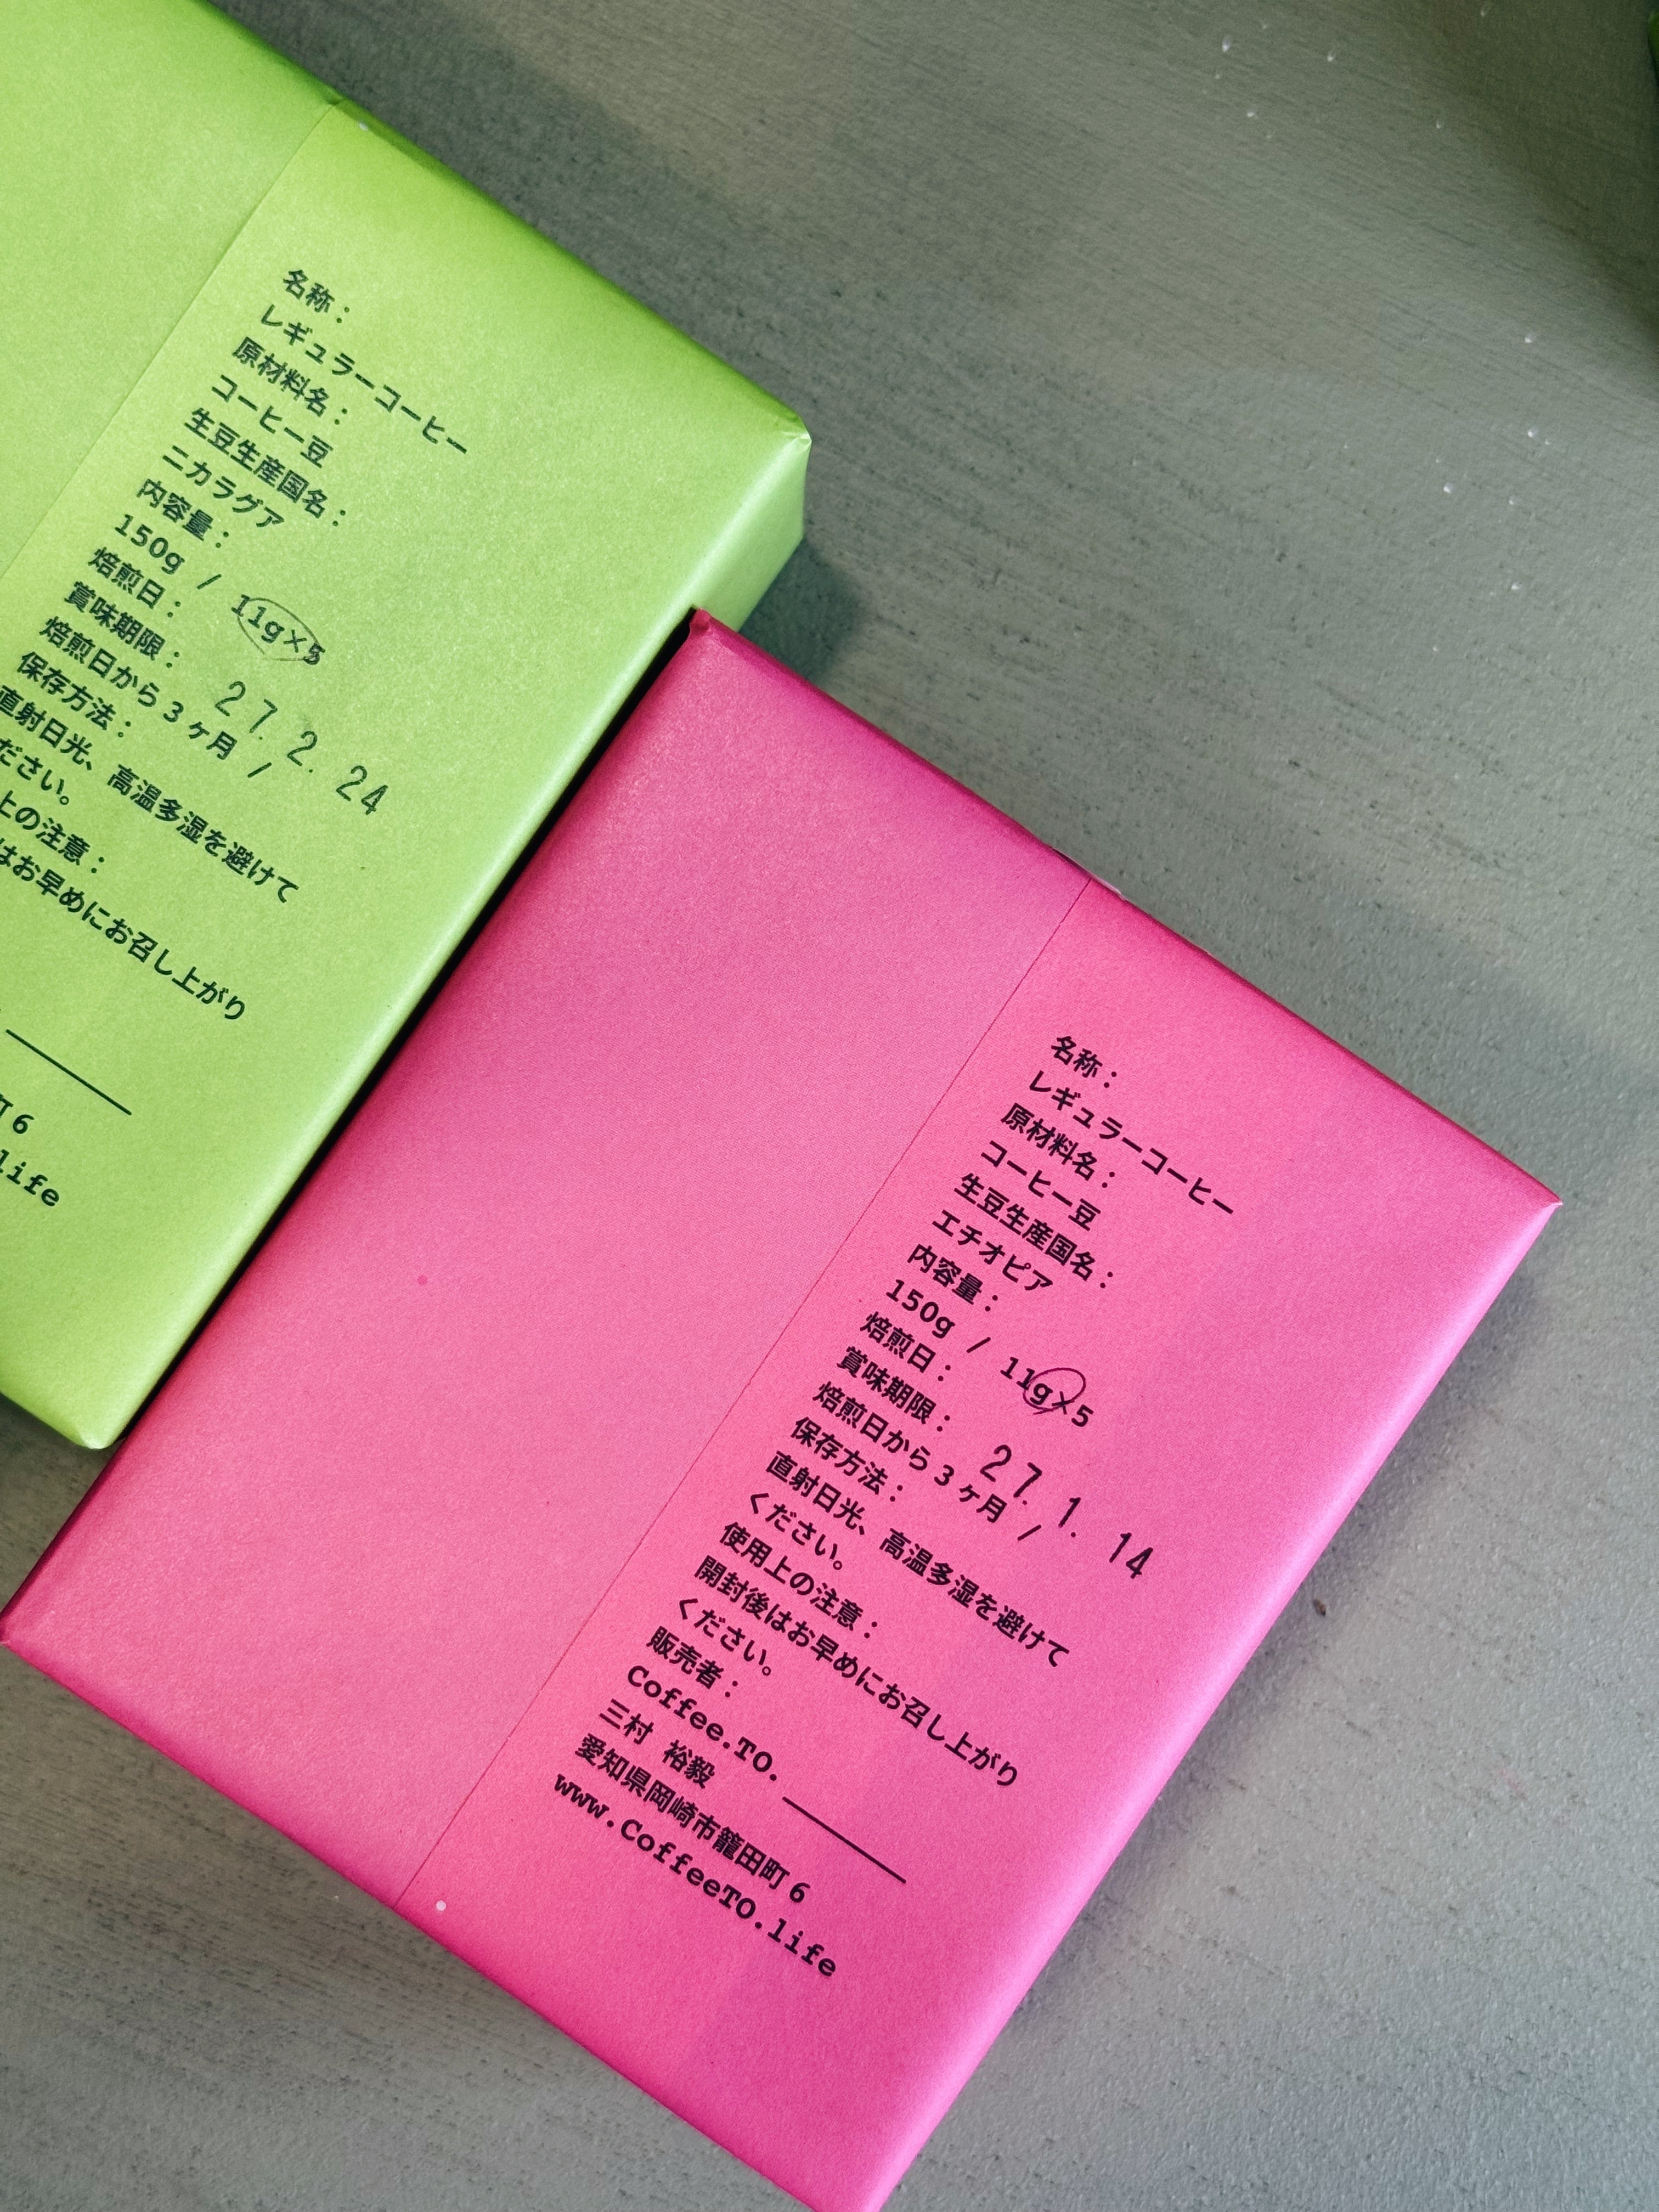 名称：
レギュラーコーヒー
原材料名：
コーヒー豆
生豆生産国名：
ニカラグア
内容量：
150g / 11g×5
焙煎日：
賞味期限：
27. 2. 24
焙煎日から3ヶ月 /
保存方法：
直射日光、高温多湿を避けて
ださい。
上の注意：
はお早めにお召し上がり
町6
life
名称：
レギュラーコーヒー
原材料名：
コーヒー豆
生豆生産国名：
エチオピア
内容量：
150g / 11g×5
焙煎日：
賞味期限：
27. 1. 14
焙煎日から3ヶ月 /
保存方法：
直射日光、高温多湿を避けて
ください。
使用上の注意：
開封後はお早めにお召し上がり
ください。
販売者：
Coffee.TO.
三村 裕毅
愛知県岡崎市籠田町6
www.CoffeeTO.life